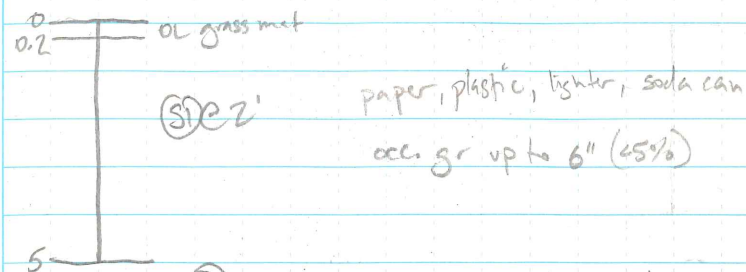 0 OL grass mat
0.2
S1@2' paper, plastic, lighter, soda can
occ. gr up to 6" (<5%)
5